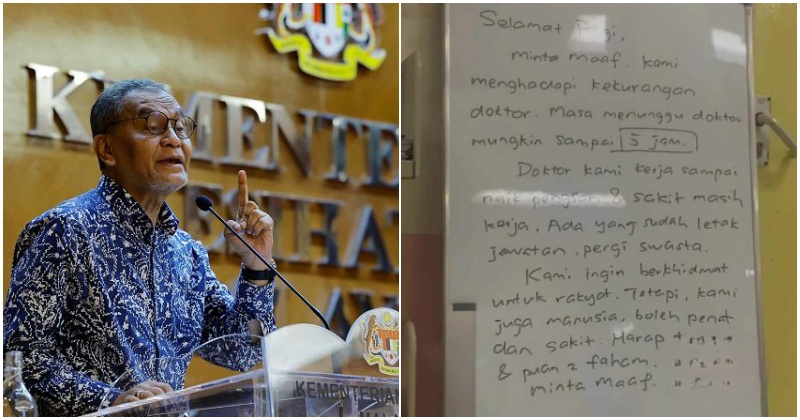 KEMENTE
ESIHATA
KEMENTERIA
Selamat Pagi,
Minta maaf. Kami
menghadapi kekurangan
doktor. Masa menunggu doktor
mungkin sampai 5 jam.
Doktor kami kerja sampai
naik & sakit masih
kerja, Ada yang sudah letak
jawatan, pergi swasta.
Kami ingin berkhidmat
untuk rakyat. Tetapi, kami
juga manusia, boleh penat
dan sakit. Harap
& puan2 faham.
minta maaf.